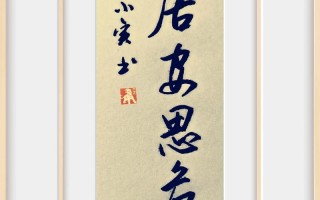 居安思危
小寅书